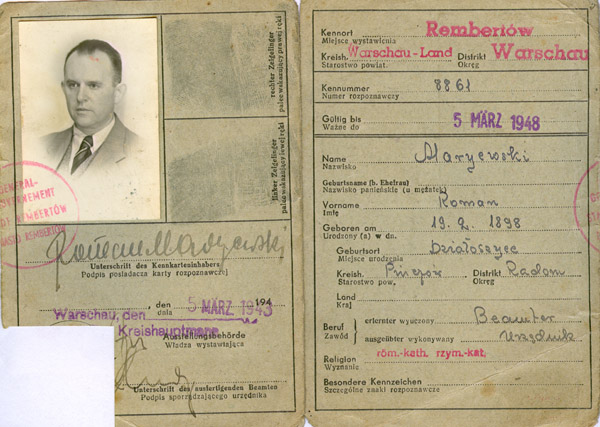 rechter Zeigefinger
palec wskazujący prawej ręki
linker Zeigefinger
palec wskazujący lewej ręki
GENERAL-
GOUVERNEMENT
REMBERTÓW
MIASTO REMBERTÓW
Roman Maryewski
Unterschrift des Kennkarteninhabers
Podpis posiadacza karty rozpoznawczej
Warschau, den
, den 5. MÄRZ 1943 194
dnia
Kreishauptmann
Ausstellungsbehörde
Władza wystawiająca
Unterschrift des ausfertigenden Beamten
Podpis sporządzającego urzędnika
Kennort Rembertów
Miejsce wystawienia
Kreish. Warschau-Land Distrikt Warschau
Starostwo powiat. Okręg
Kennummer 8861
Numer rozpoznawczy
Gültig bis 5 MÄRZ 1948
Ważne do
Name Maryewski
Nazwisko
Geburtsname (b. Ehefrau)
Nazwisko panieńskie (u mężatek)
Vorname Roman
Imię
Geboren am 19. 2. 1898
Urodzony (a) w dn.
Geburtsort Działoszyce
Miejsce urodzenia
Kreish. Pińczów Distrikt Radom
Starostwo pow. Okręg
Land
Kraj
Beruf erlernter wyuczony Beamter
Zawód ausgeübter wykonywany Urzędnik
Religion röm.-kath. rzym.-kat.
Wyznanie
Besondere Kennzeichen
Szczególne znaki rozpoznawcze